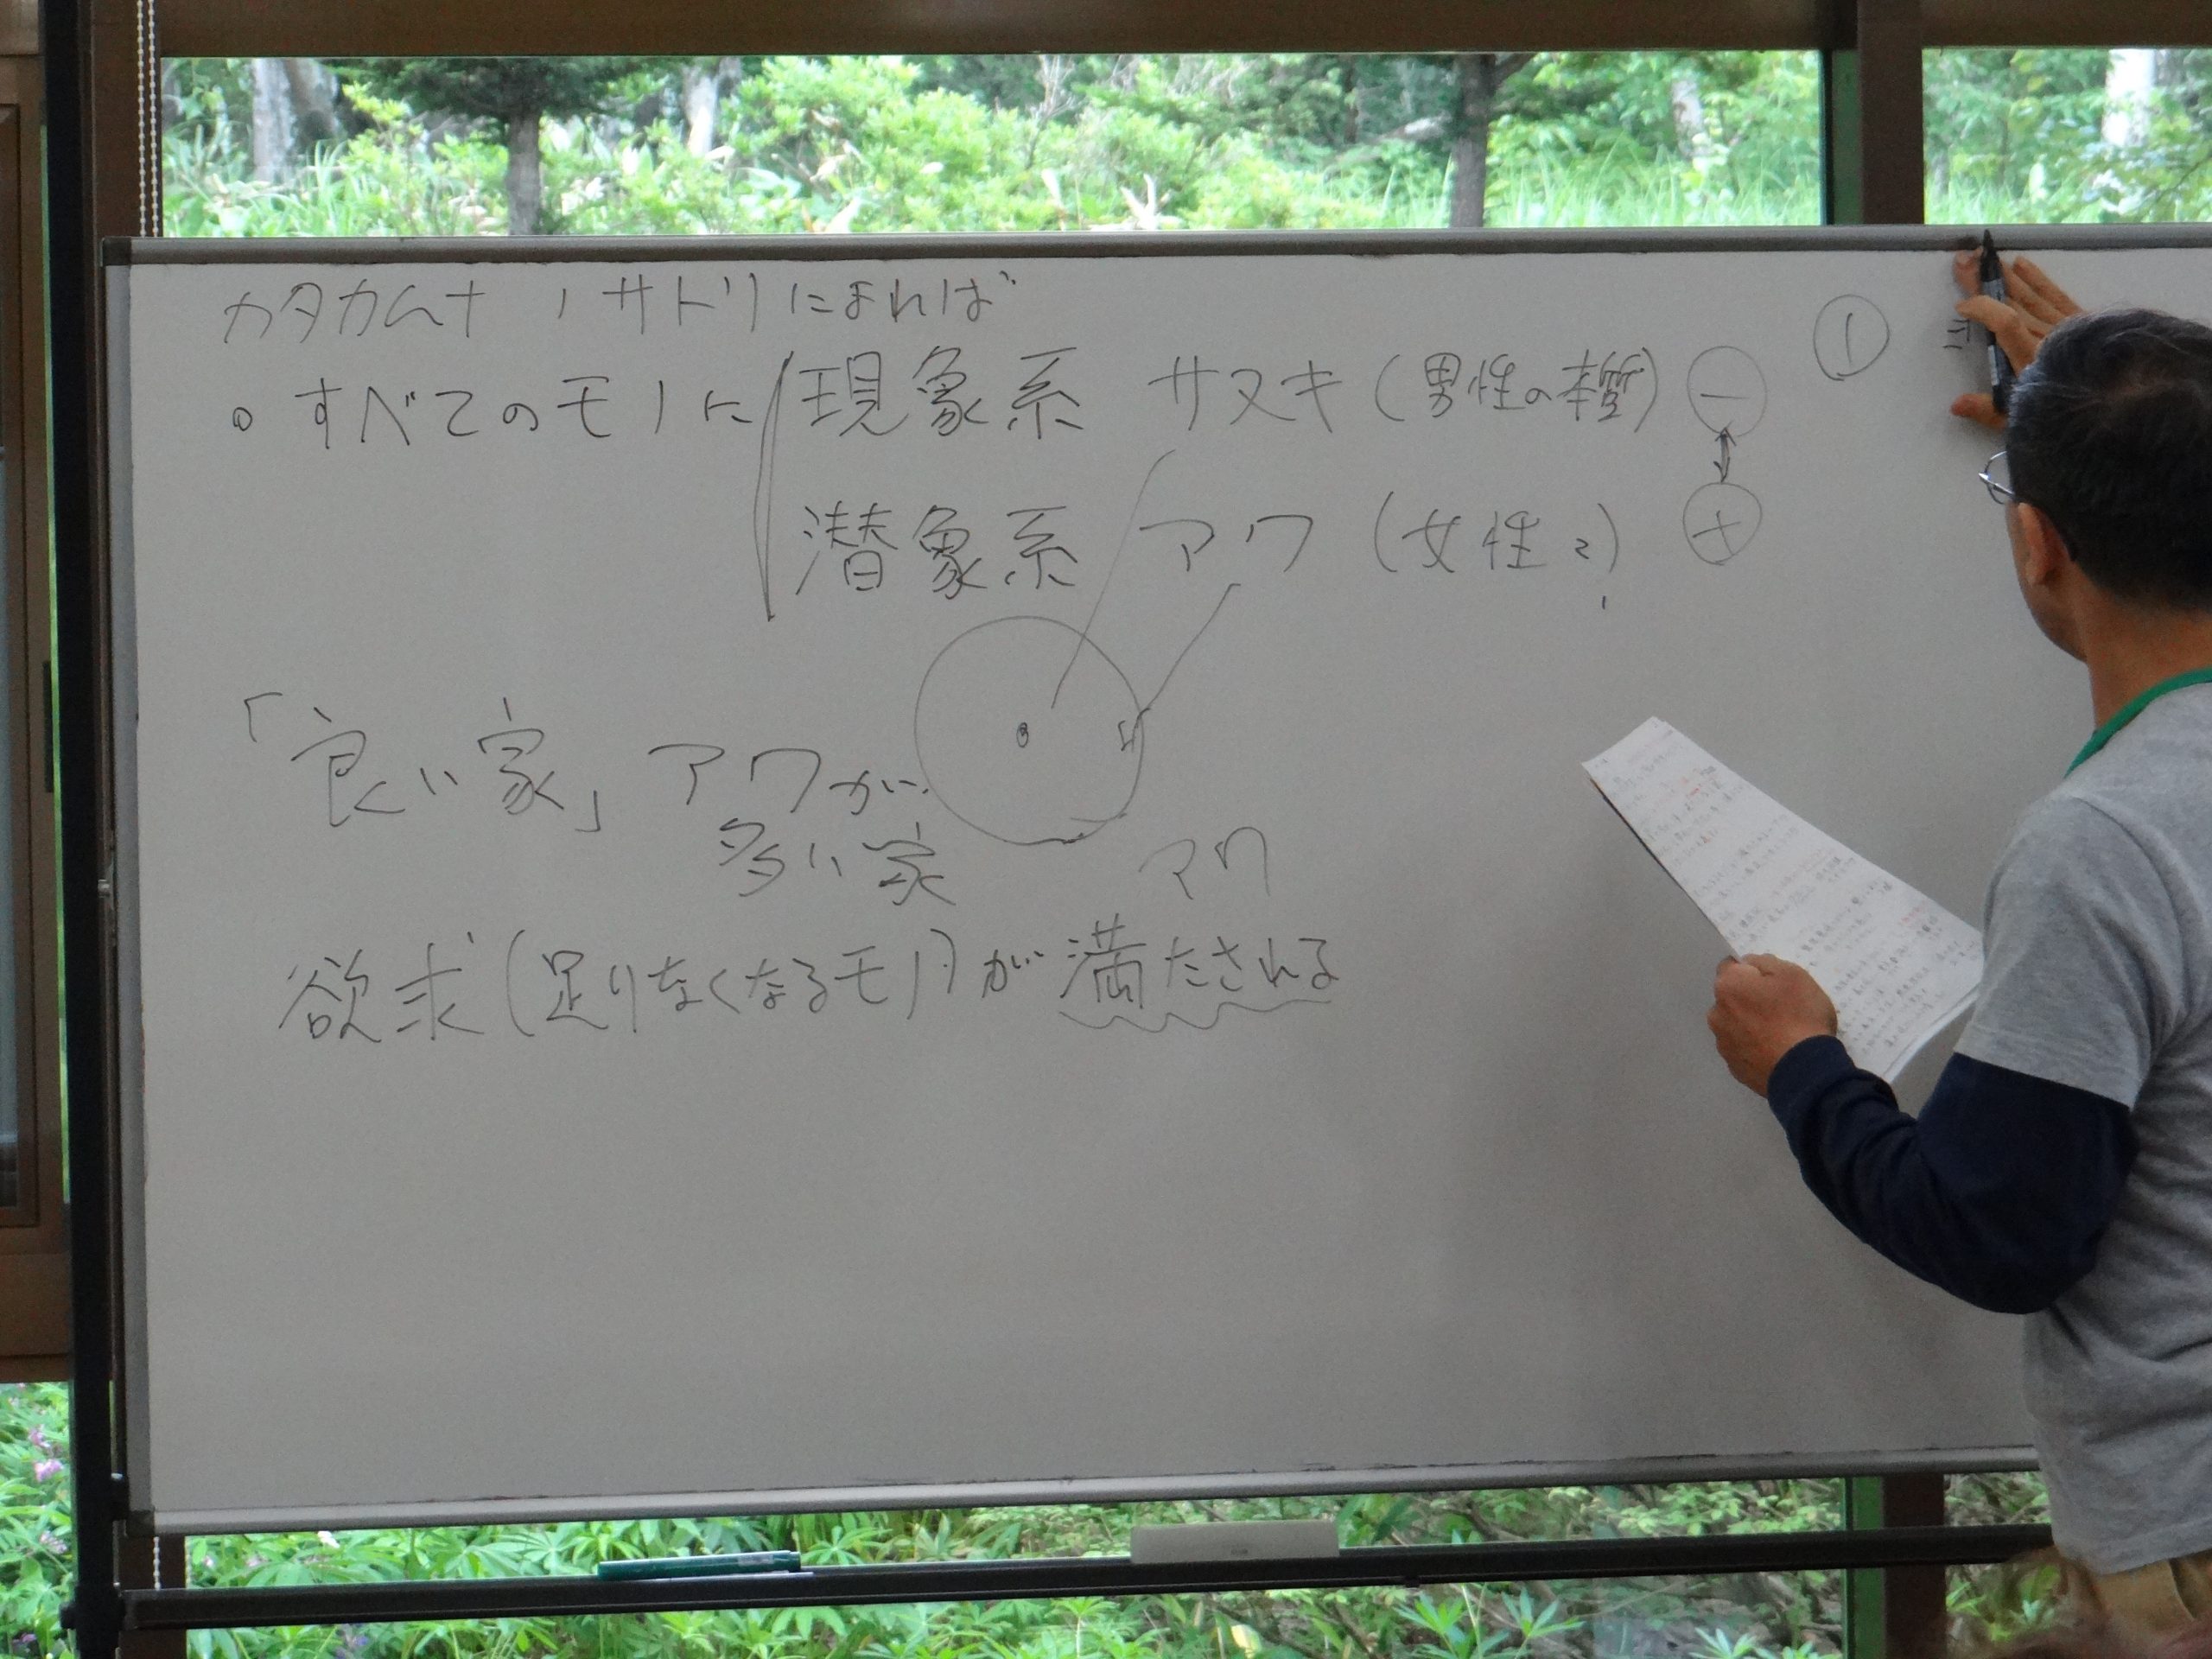 カタカムナノサトリによれば
。すべてのモノに 現象系 サヌキ(男性の本質) ⊖ ①
潜象系 アワ(女性〃) ⊕
「良い家」アワが
多い家
アワ
欲求(足りなくなるモノ)が満たされる